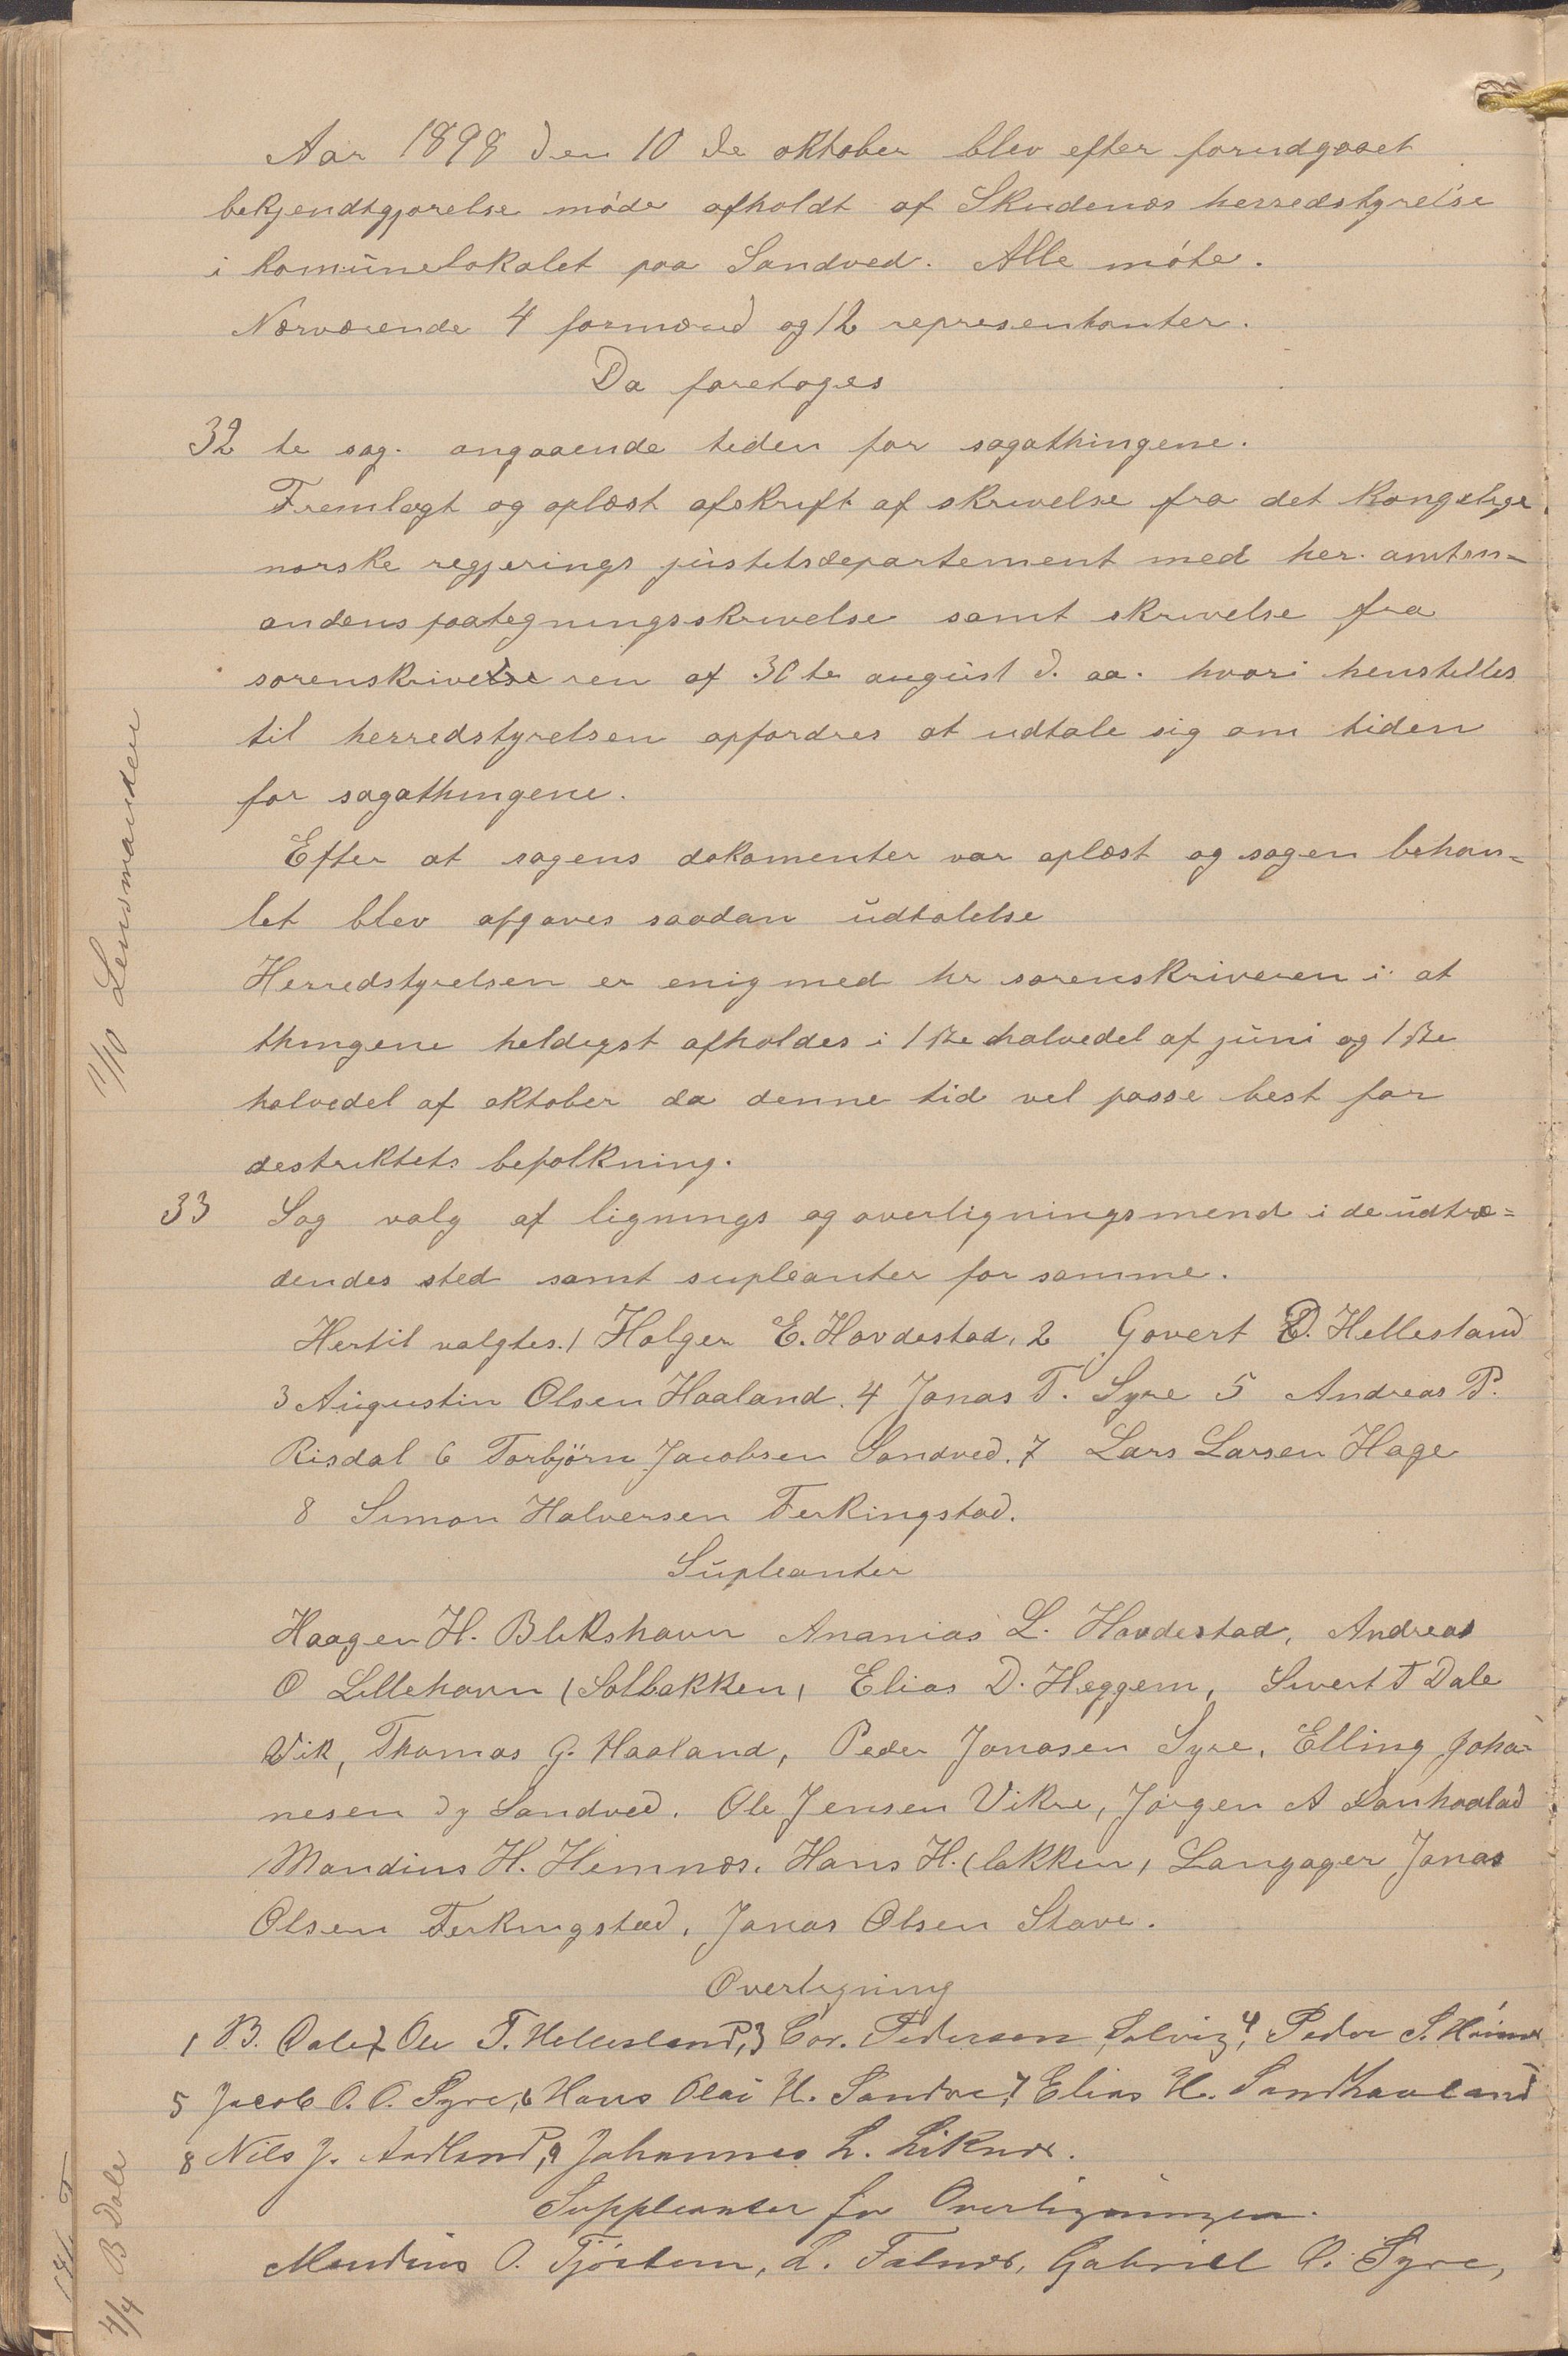 Aar 1898 den 10 de oktober blev efter forudgaaet
bekjendtgjørelse møde afholdt af Skudenæs herredstyrelse
i komünelokalet paa Sandved. Alle møte.
Nærværende 4 formænd og 12 representanter.
Da foretoges
32 te sag. angaaende tiden for sagathingene.
Fremlagt og oplæst afskrift af skrivelse fra det kongelige
norske regjerings jüstitsdepartement med her. amtm-
andens paategningsskrivelse samt skrivelse fra
sorenskriveren af 30 te august d. aa. hvori henstilles
til herredstyrelsen opfordres at udtale sig om tiden
for sagathingene.
Efter at sagens dokomenter var oplæst og sagen behan-
let blev afgaves saadan üdtalelse
Herredstyrelsen er enig med hr sorenskriveren i at
thingene heldigst afholdes i 1ste halvedel af jüni og 1ste
halvedel af oktober da denne tid vel passe best for
destriktets befolkning.
33 Sag valg af lignings og overligningsmend i de üdtræ=
dendes sted samt supleanter for samme.
Hertil valgtes. 1 Holger E. Hovdestad, 2 Govert D. Hellesland
3 Aügustin Olsen Haaland. 4 Jonas T. Syre 5 Andreas P.
Risdal 6 Torbjörn Jacobsen Sandved. 7 Lars Larsen Hage
8 Simon Halversen Ferkingstad.
Süpleanter
Haagen H. Blikshavn Ananias L. Hovdestad, Andreas
O Lillehavn (Solbakken, Elias D. Heggem, Sivert T Dale
Vik, Thomas G. Haaland, Peder Jonasen Syre, Elling Joha=
nesen dy Sandved. Ole Jensen Vikre, Jørgen A Sanhaalad
Mandius H. Hemnæs. Hans H. (bakken, Langager Jonas
Olsen Ferkingstad, Jonas Olsen Stave.
Overligning
1 B. Dale, 2 Ole T. Hellesland, 3 Cor. Pedersen Solvig, 4 Peder S.
5 Jacob O. O. Syre, 6 Hans Olai H. Sandve, 7 Elias H. Sandhaaland
8 Nils J. Aadland, 9 Johannes L. Liknæs.
Suppleanter for Overligningen.
Mandius O. Tjøstem, L. Falnæs, Gabriel O. Syre,
11/10 Lensmanden
4/4 B Dale